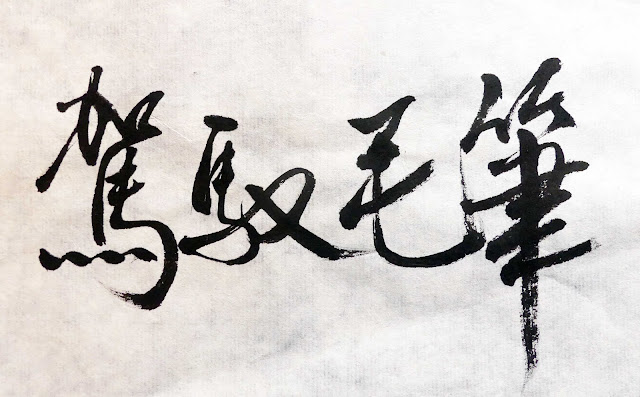 駕馭毛筆